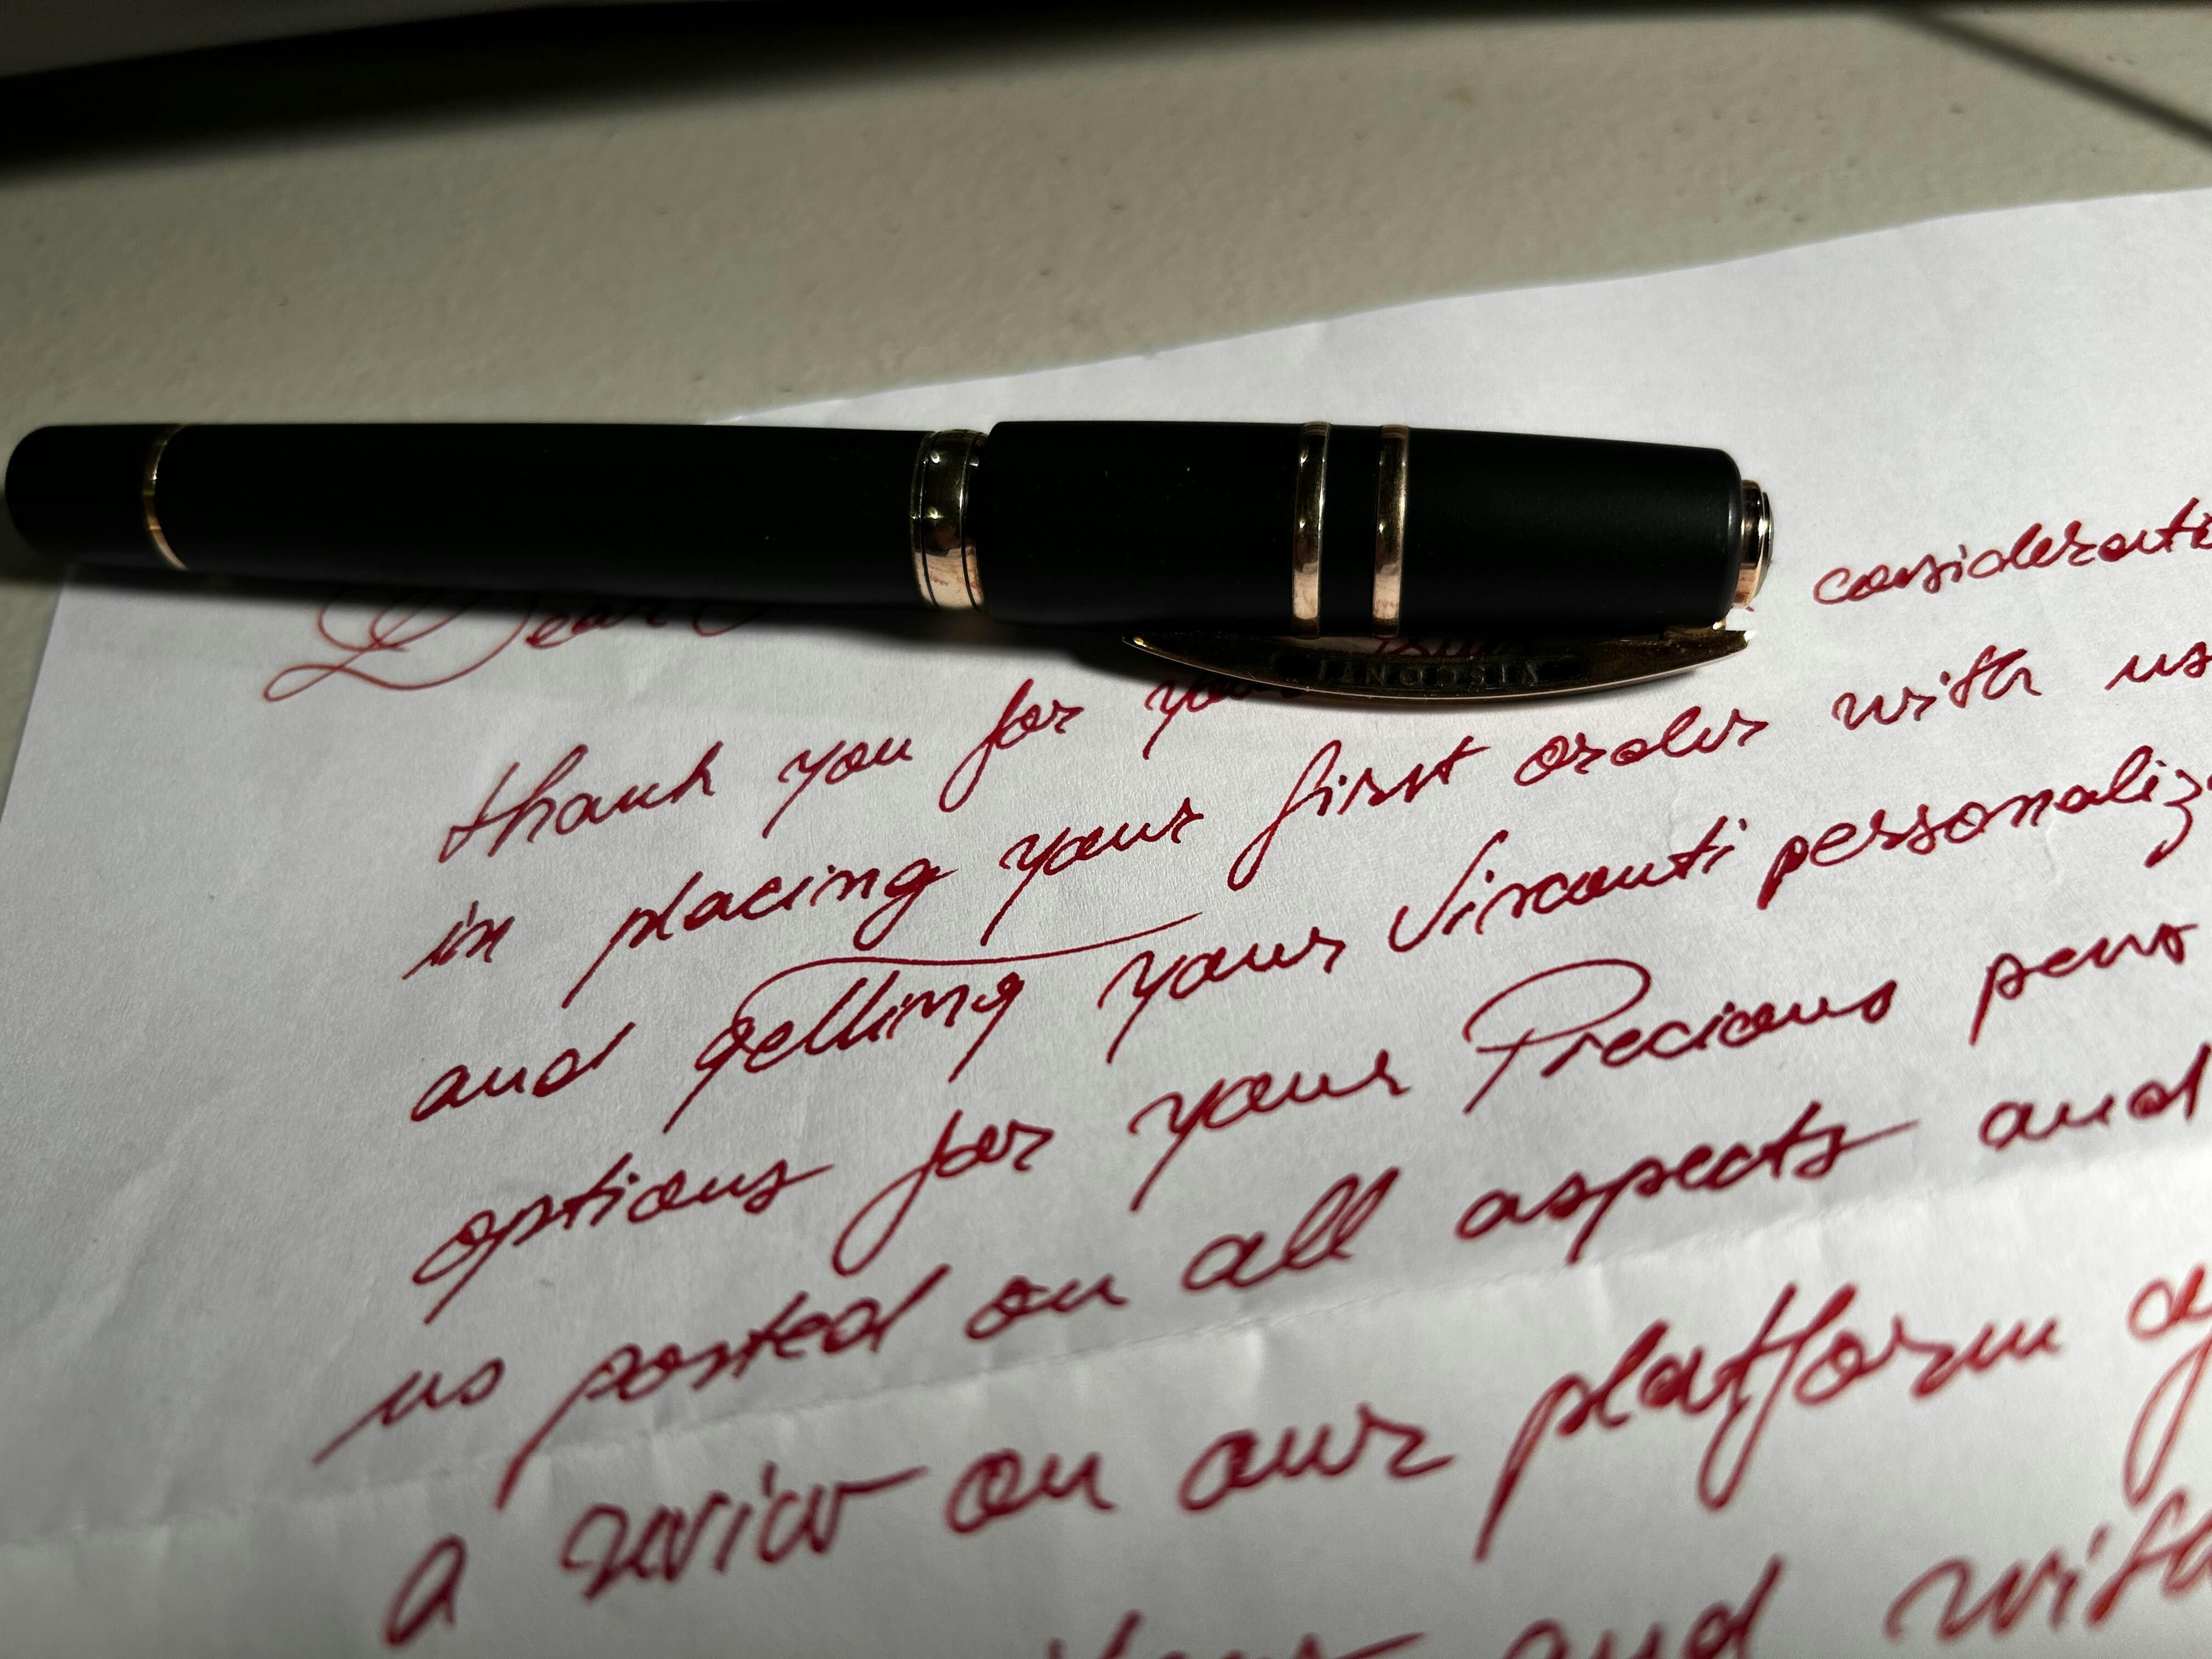 Dear
considerati
VISCONTI
thank you for you
in placing your first order with us
and getting your Visconti personaliz
options for your Precious pens
us posted on all aspects and
a review on our platform
and with